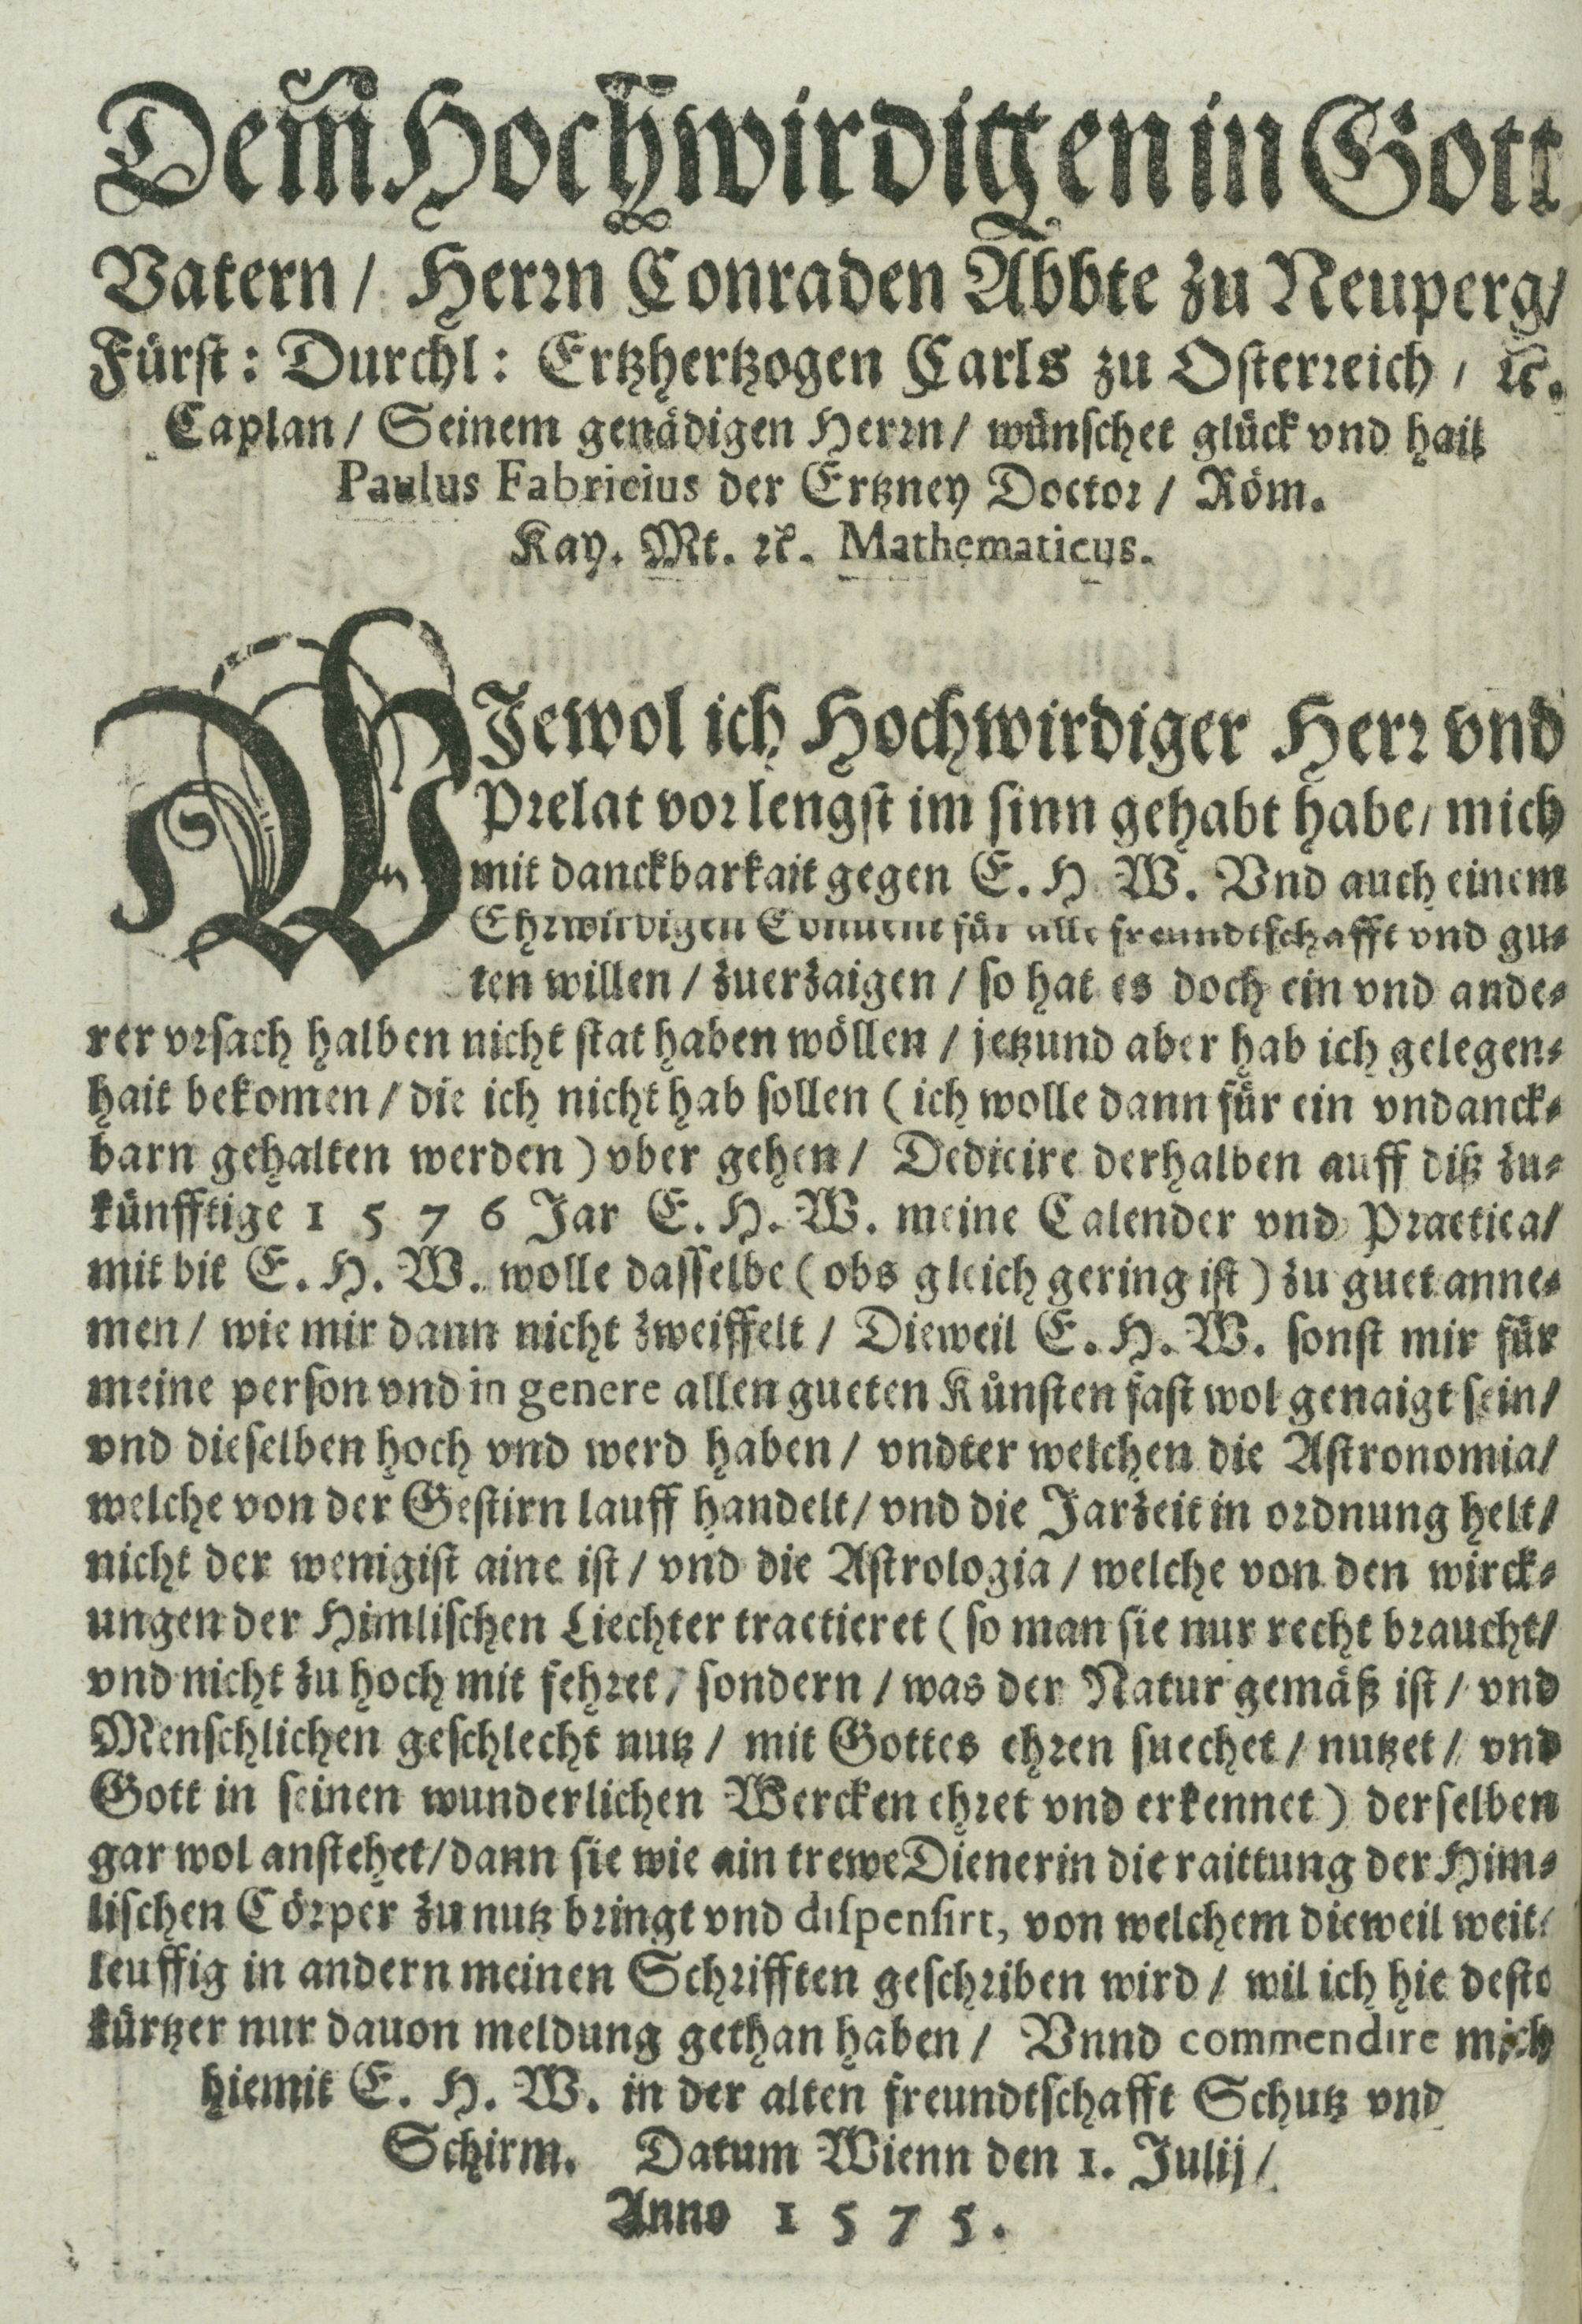 Dem Hochwirdigen in Gott
Vatern / Herrn Conraden Abbte zu Neuperg /
Fürst: Durchl: Ertzhertzogen Carls zu Osterreich / ꝛc.
Caplan / Seinem genädigen Herrn / wünschet glück vnd hail
Paulus Fabricius der Ertzney Doctor / Röm.
Kay. Mt. ꝛc. Mathematicus.
WJewol ich Hochwirdiger Herr vnd
Prelat vor lengst im sinn gehabt habe / mich
mit danckbarkait gegen E. H. W. Vnd auch einem
Ehrwirdigen Conuent für alle freundtschafft vnd gu⸗
ten willen / zuerzaigen / so hat es doch ein vnd ande⸗
rer vrsach halben nicht stat haben wöllen / jetzund aber hab ich gelegen⸗
hait bekomen / die ich nicht hab sollen ( ich wolle dann für ein vndanck⸗
barn gehalten werden ) vber gehen / Dedicire derhalben auff diß zu⸗
künfftige 1 5 7 6 Jar E. H. W. meine Calender vnd Practica /
mit bit E. H. W. wolle dasselbe ( obs gleich gering ist ) zu guet anne⸗
men / wie mir dann nicht zweiffelt / Dieweil E. H. W. sonst mir für
meine person vnd in genere allen gueten Künsten fast wol genaigt sein /
vnd dieselben hoch vnd werd haben / vndter welchen die Astronomia /
welche von der Gestirn lauff handelt / vnd die Jarzeit in ordnung helt /
nicht der wenigist aine ist / vnd die Astrologia / welche von den wirck⸗
ungen der Himlischen Liechter tractieret ( so man sie nur recht braucht /
vnd nicht zu hoch mit fehret / sondern / was der Natur gemäß ist / vnd
Menschlichen geschlecht nutz / mit Gottes ehren suechet / nutzet / vnd
Gott in seinen wunderlichen Wercken ehret vnd erkennet ) derselben
gar wol anstehet / dann sie wie ain trewe Dienerin die raittung der Him⸗
lischen Cörper zu nutz bringt vnd dispensirt, von welchem dieweil weit⸗
leuffig in andern meinen Schrifften geschriben wird / wil ich hie desto
kürtzer nur dauon meldung gethan haben / Vnnd commendire mich
hiemit E. H. W. in der alten freundtschafft Schutz vnd
Schirm. Datum Wienn den 1. Julij /
Anno 1 5 7 5 .